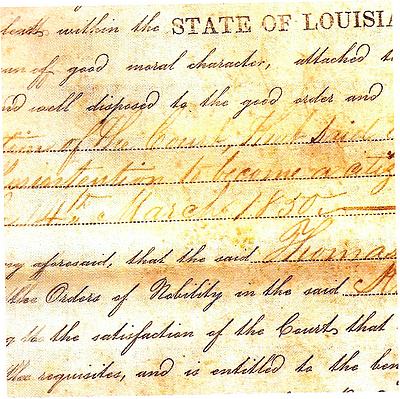 within the STATE OF LOUISIA
of good moral character, attached to
nd well disposed to the good order and
of the Court, that said
intention to become a citiz
4th March 1850
aforesaid, that the said Thomas
the Orders of Nobility in the said
g to the satisfaction of the Court that
the requisites, and is entitled to the ben